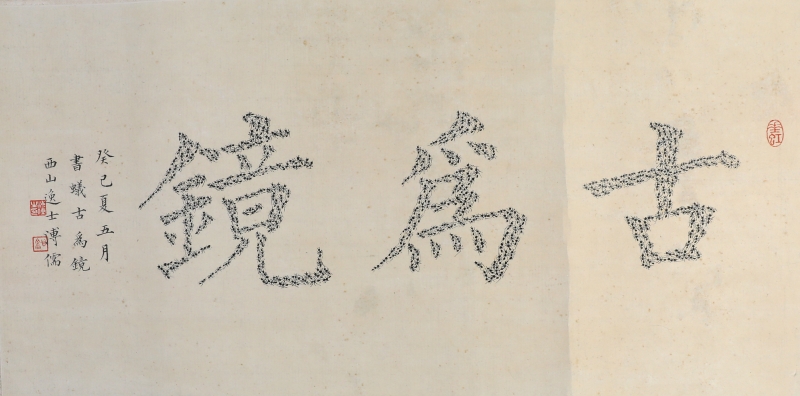 古為鏡
癸巳夏五月
書蟻古為鏡
西山逸士溥儒